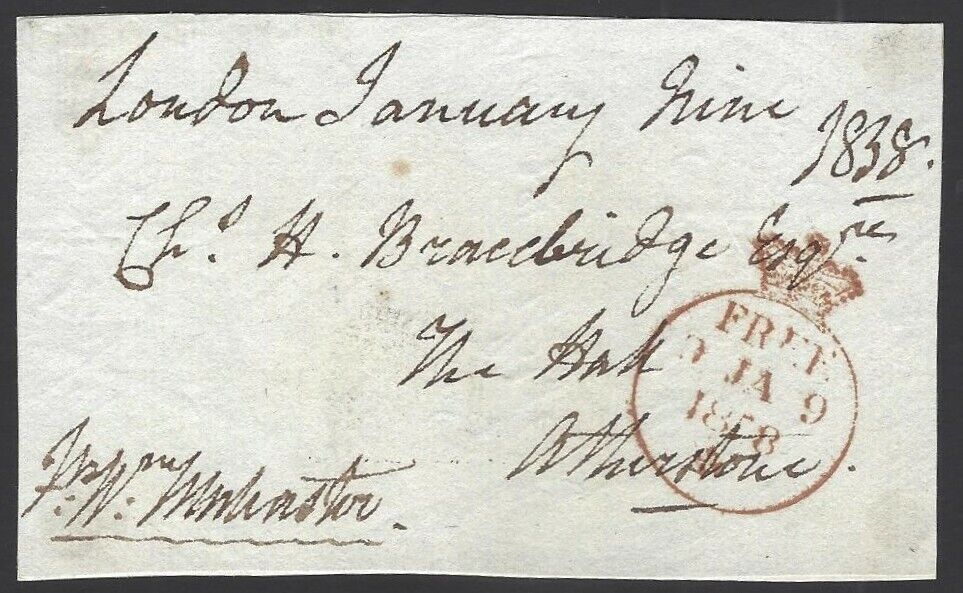 London January Nine
1838.
Chs. H. Bracebridge Esqre
The Hall
Atherstone.
FREE
9 JA 9
1838